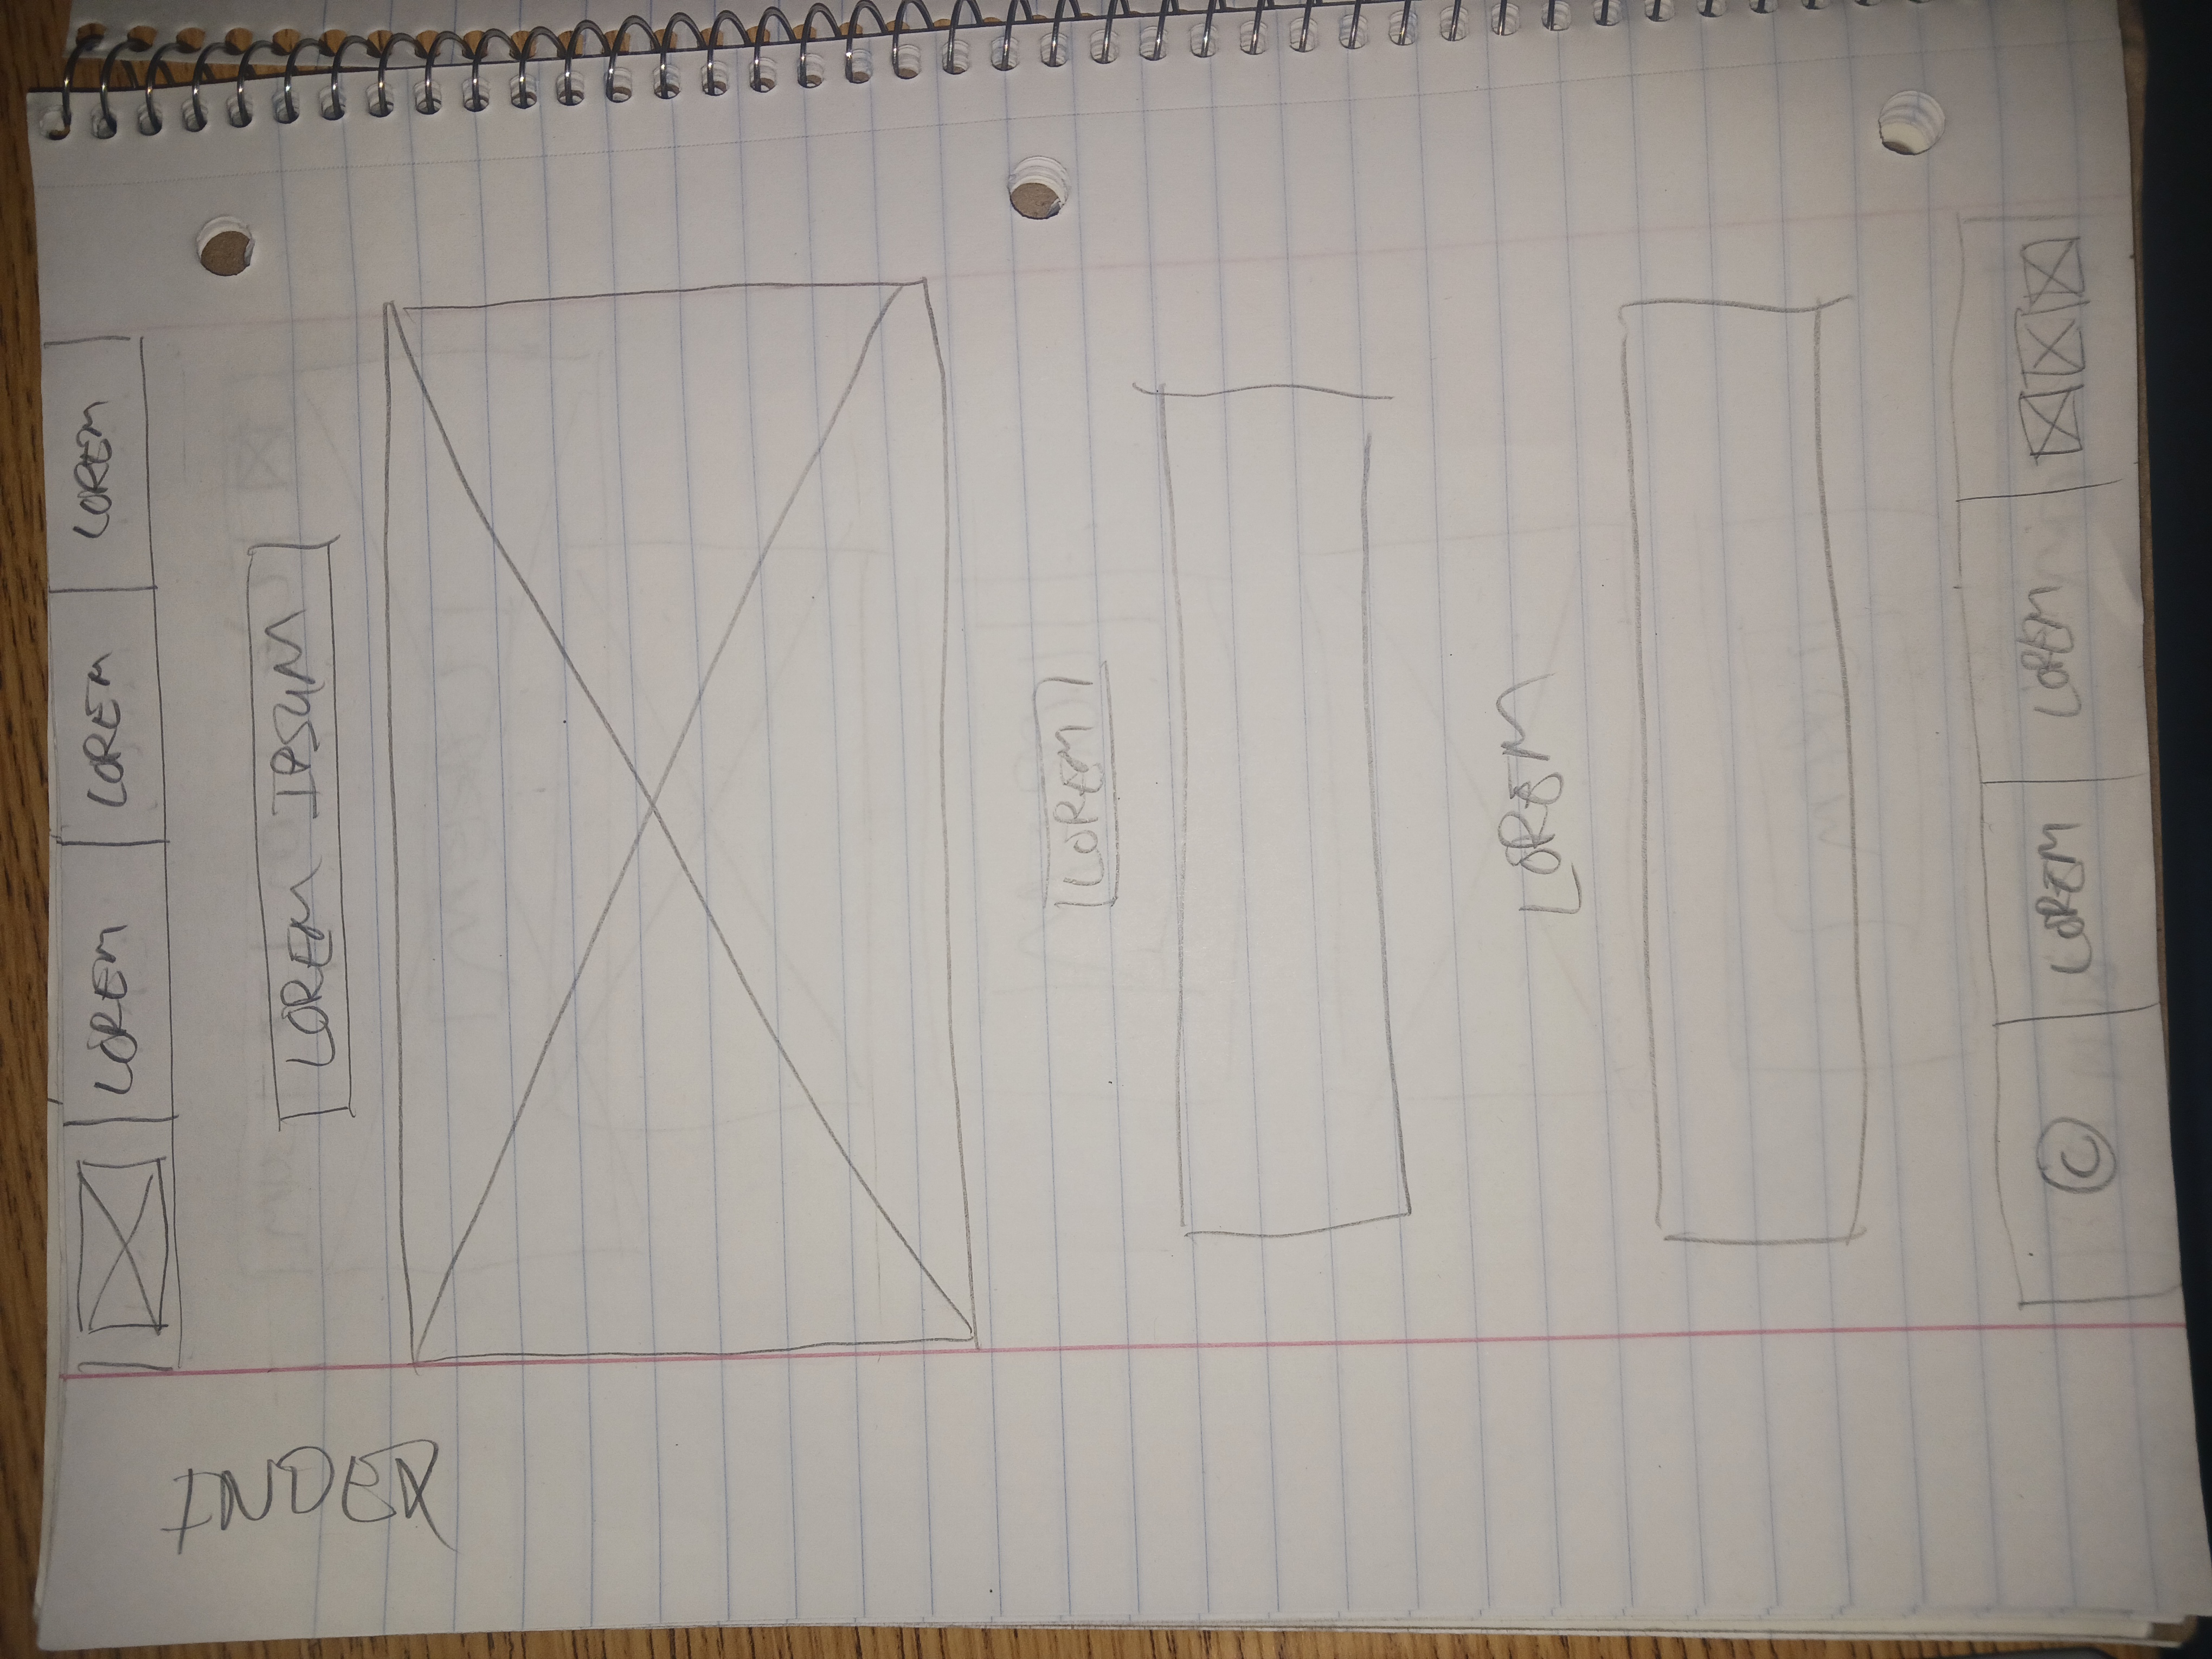 LOREM LOREM LOREM
INDEX
LOREM IPSUM
LOREM
LOREM
© LOREM LOREM